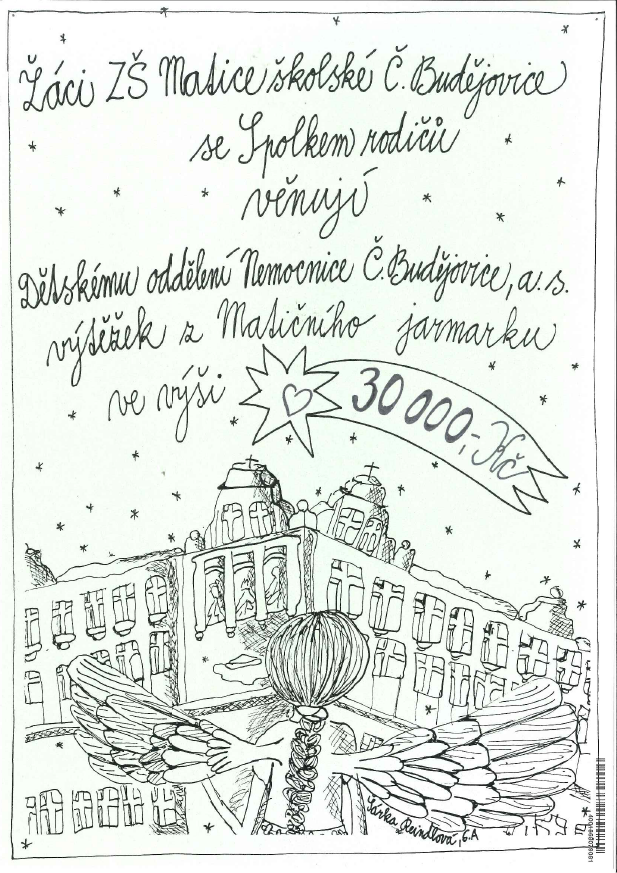 Žáci ZŠ Matice školské Č. Budějovice
se Spolkem rodičů
věnují
Dětskému oddělení Nemocnice Č. Budějovice, a. s.
výtěžek z Matičního jarmarku
ve výši 30 000,- Kč
Šárka Reindlová, 6.A